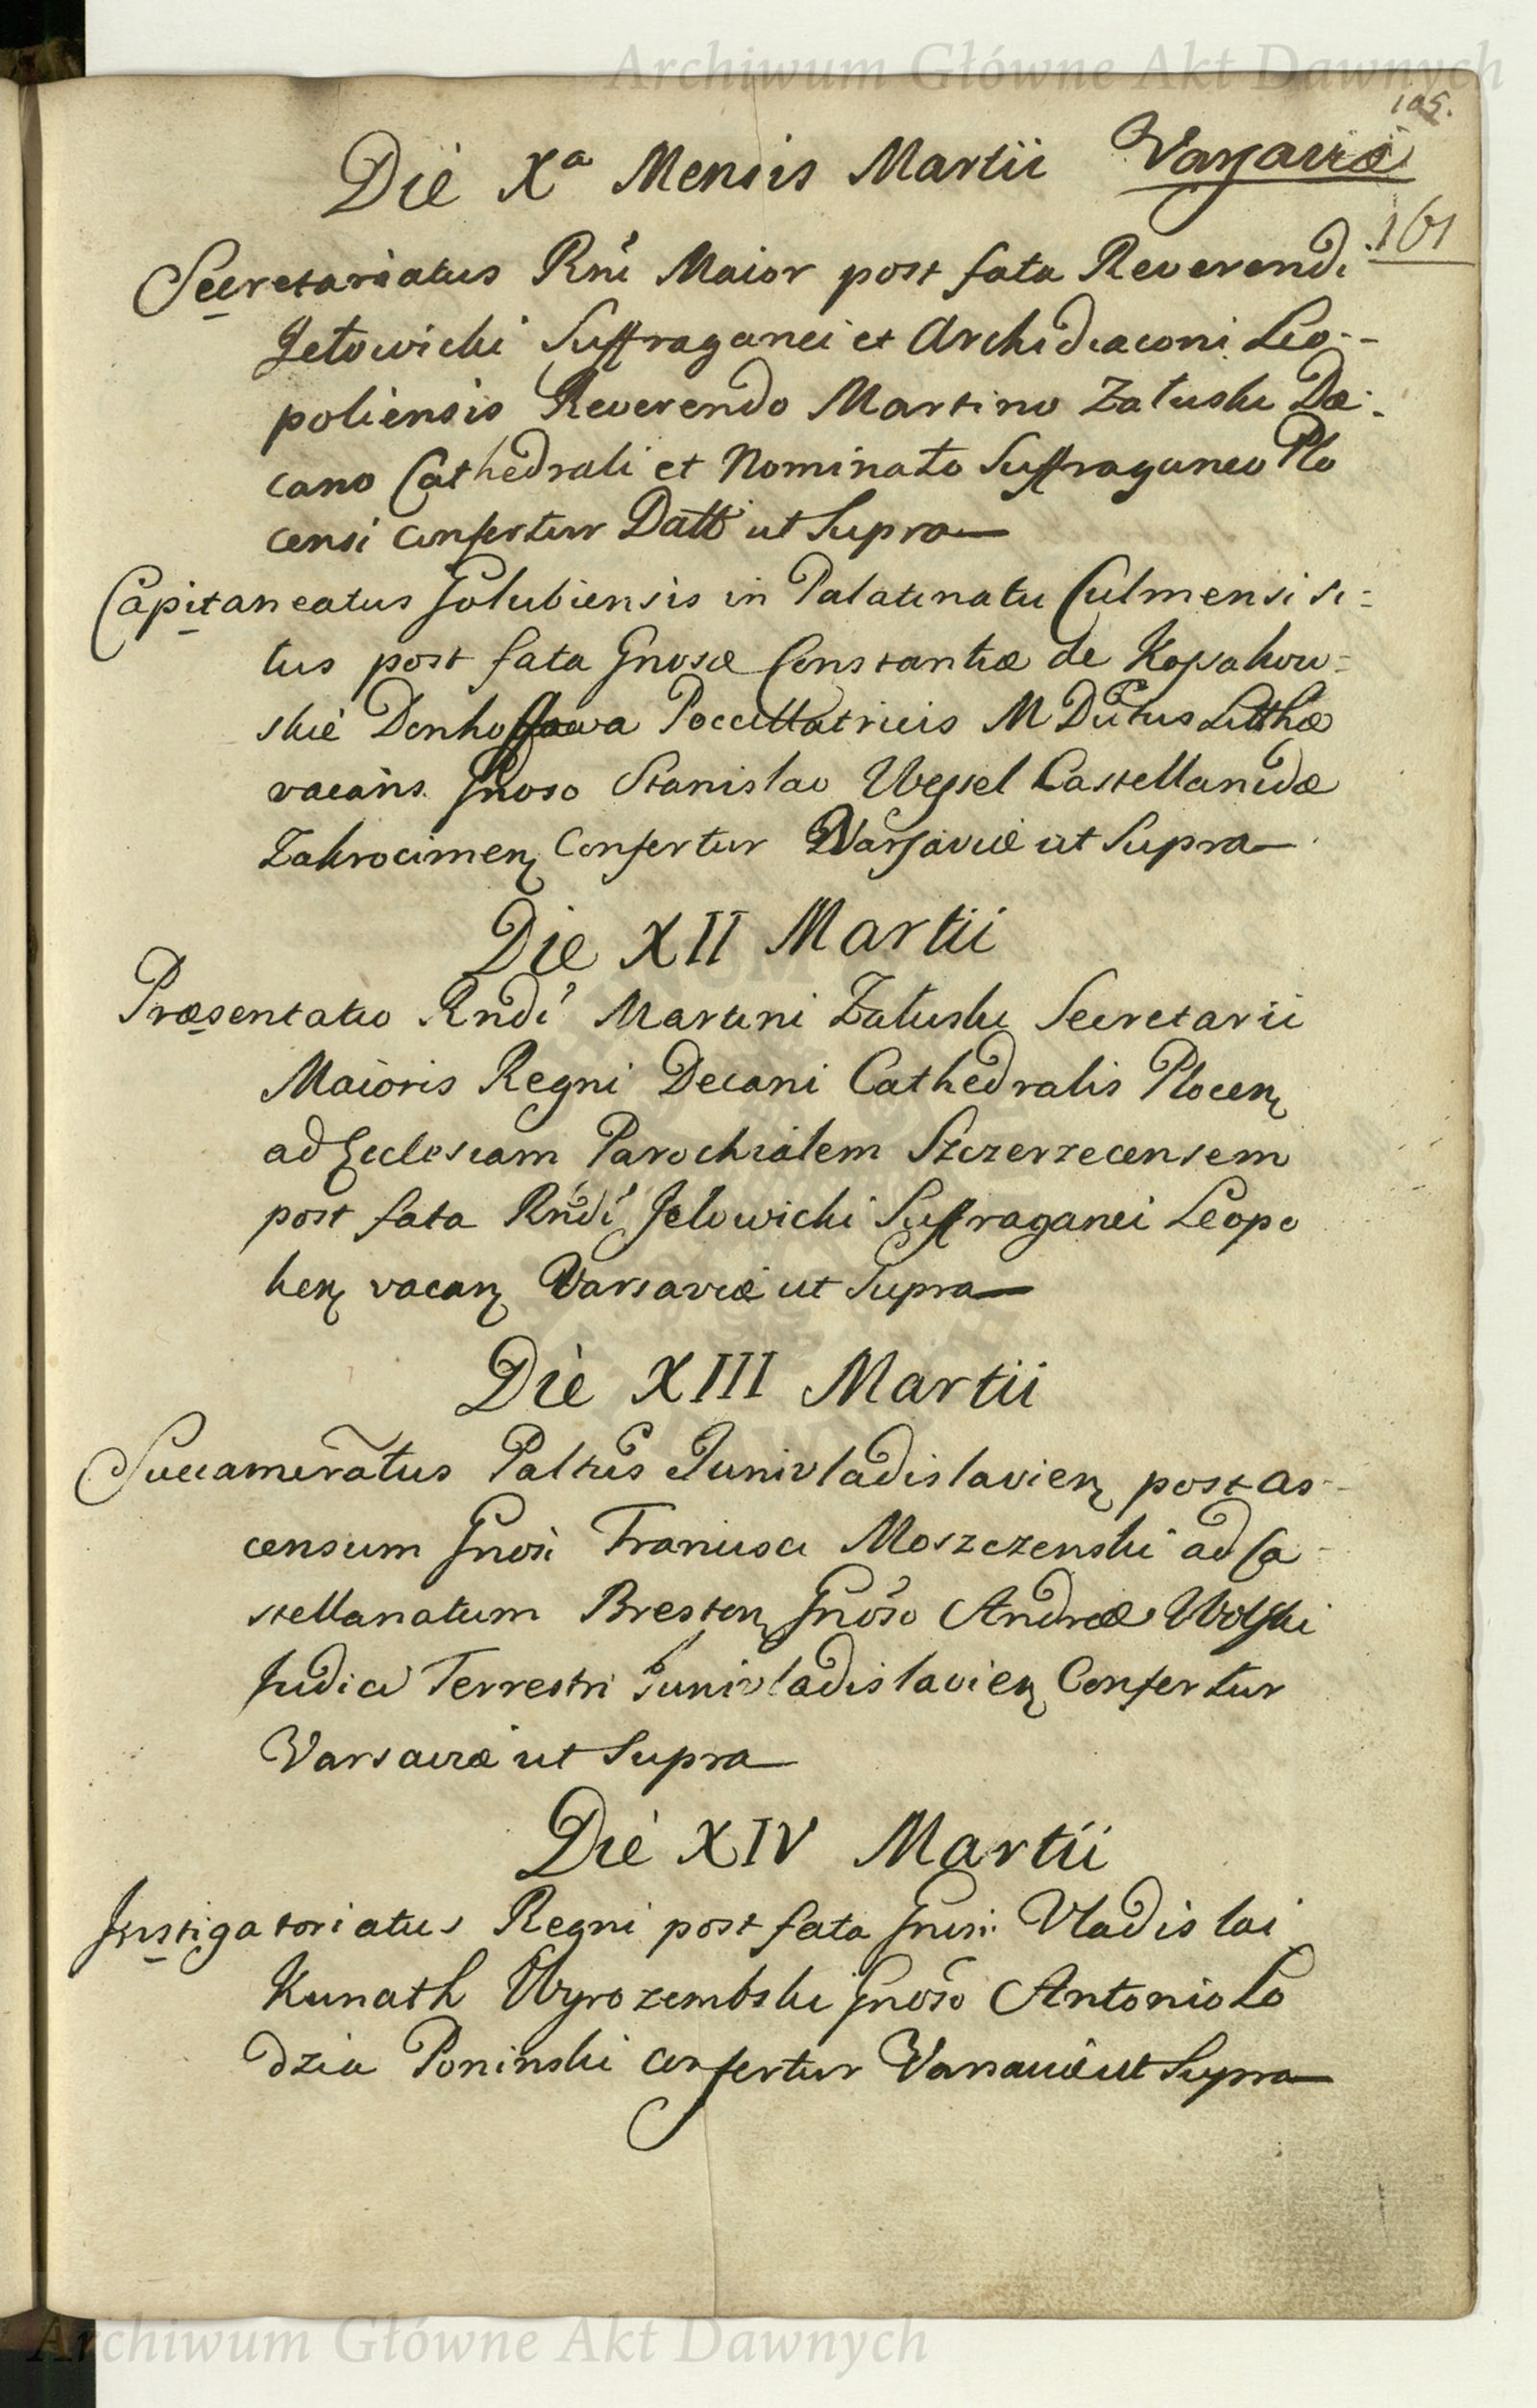 Archiwum Główne Akt Dawnych
105.
Die Xa Mensis Martii Varsaviæ
161
Secretariatus Rni Maior post fata Reverendi
Jełowicki Suffraganei et Archidiaconi Leo-
poliensis Reverendo Martino Załuski De-
cano Cathedrali et Nominato Suffraganeo Plo
censi confertur Datt ut Supra
Capitaneatus Golubiensis in Palatinatu Culmensi si=
tus post fata Gnosæ Constantiæ de
skie Denhoffowa Pocillatricis M Dutus Litthæ
vacans Gnoso Stanislao Wessel Castellanidæ
Zakrocimen Confertur Warsaviæ ut Supra
Die XII Martii
Præsentatio Rndi Martini Załuski Secretarii
Maioris Regni Decani Cathedralis Plocen
ad Ecclesiam Parochialem Szczerzecensem
post fata Rndi Jelowicki Suffraganei Leopo
lien vacan Varsaviæ ut Supra
Die XIII Martii
Succameratus Paltus Junivladislavien post as-
censum Gnosi Francisci Moszczenski ad Ca-
stellanatum Bresten Gnoso Andreæ Wolski
Judici Terrestri Junivladislavien Confertur
Varsaviæ ut Supra
Die XIV Martii
Instigatoriatus Regni post fata Gnosi Vladislai
Kunath Wyrozembski Gnoso Antonio Lo
dzia Poninski confertur Varsaviæ ut Supra
Archiwum Główne Akt Dawnych